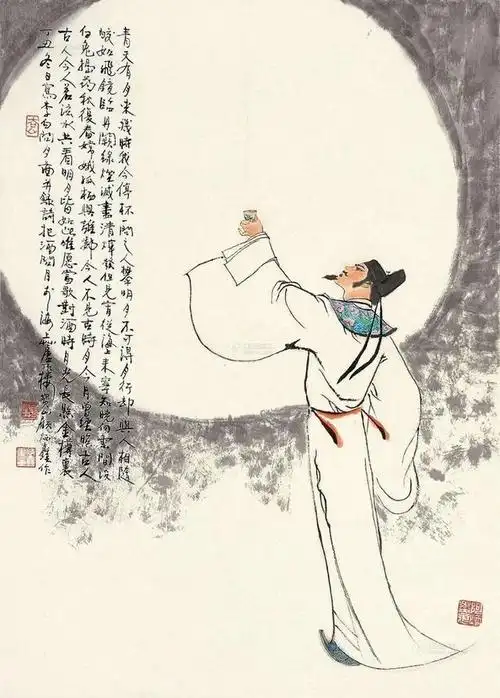 青天有月来幾時我今停杯一問之人攀明月不可得月行却與人相隨
皎如飛鏡臨丹闕綠煙滅盡清輝發但見宵從海上来寧知曉向雲間没
白兔搗药秋復春嫦娥孤栖與誰鄰今人不見古時月今月曾經照古人
古人今人若流水共看明月皆如此唯愿當歌對酒時月光長照金樽裏
丁丑冬日寫李白問月圖并錄詩把酒問月於海上樓作